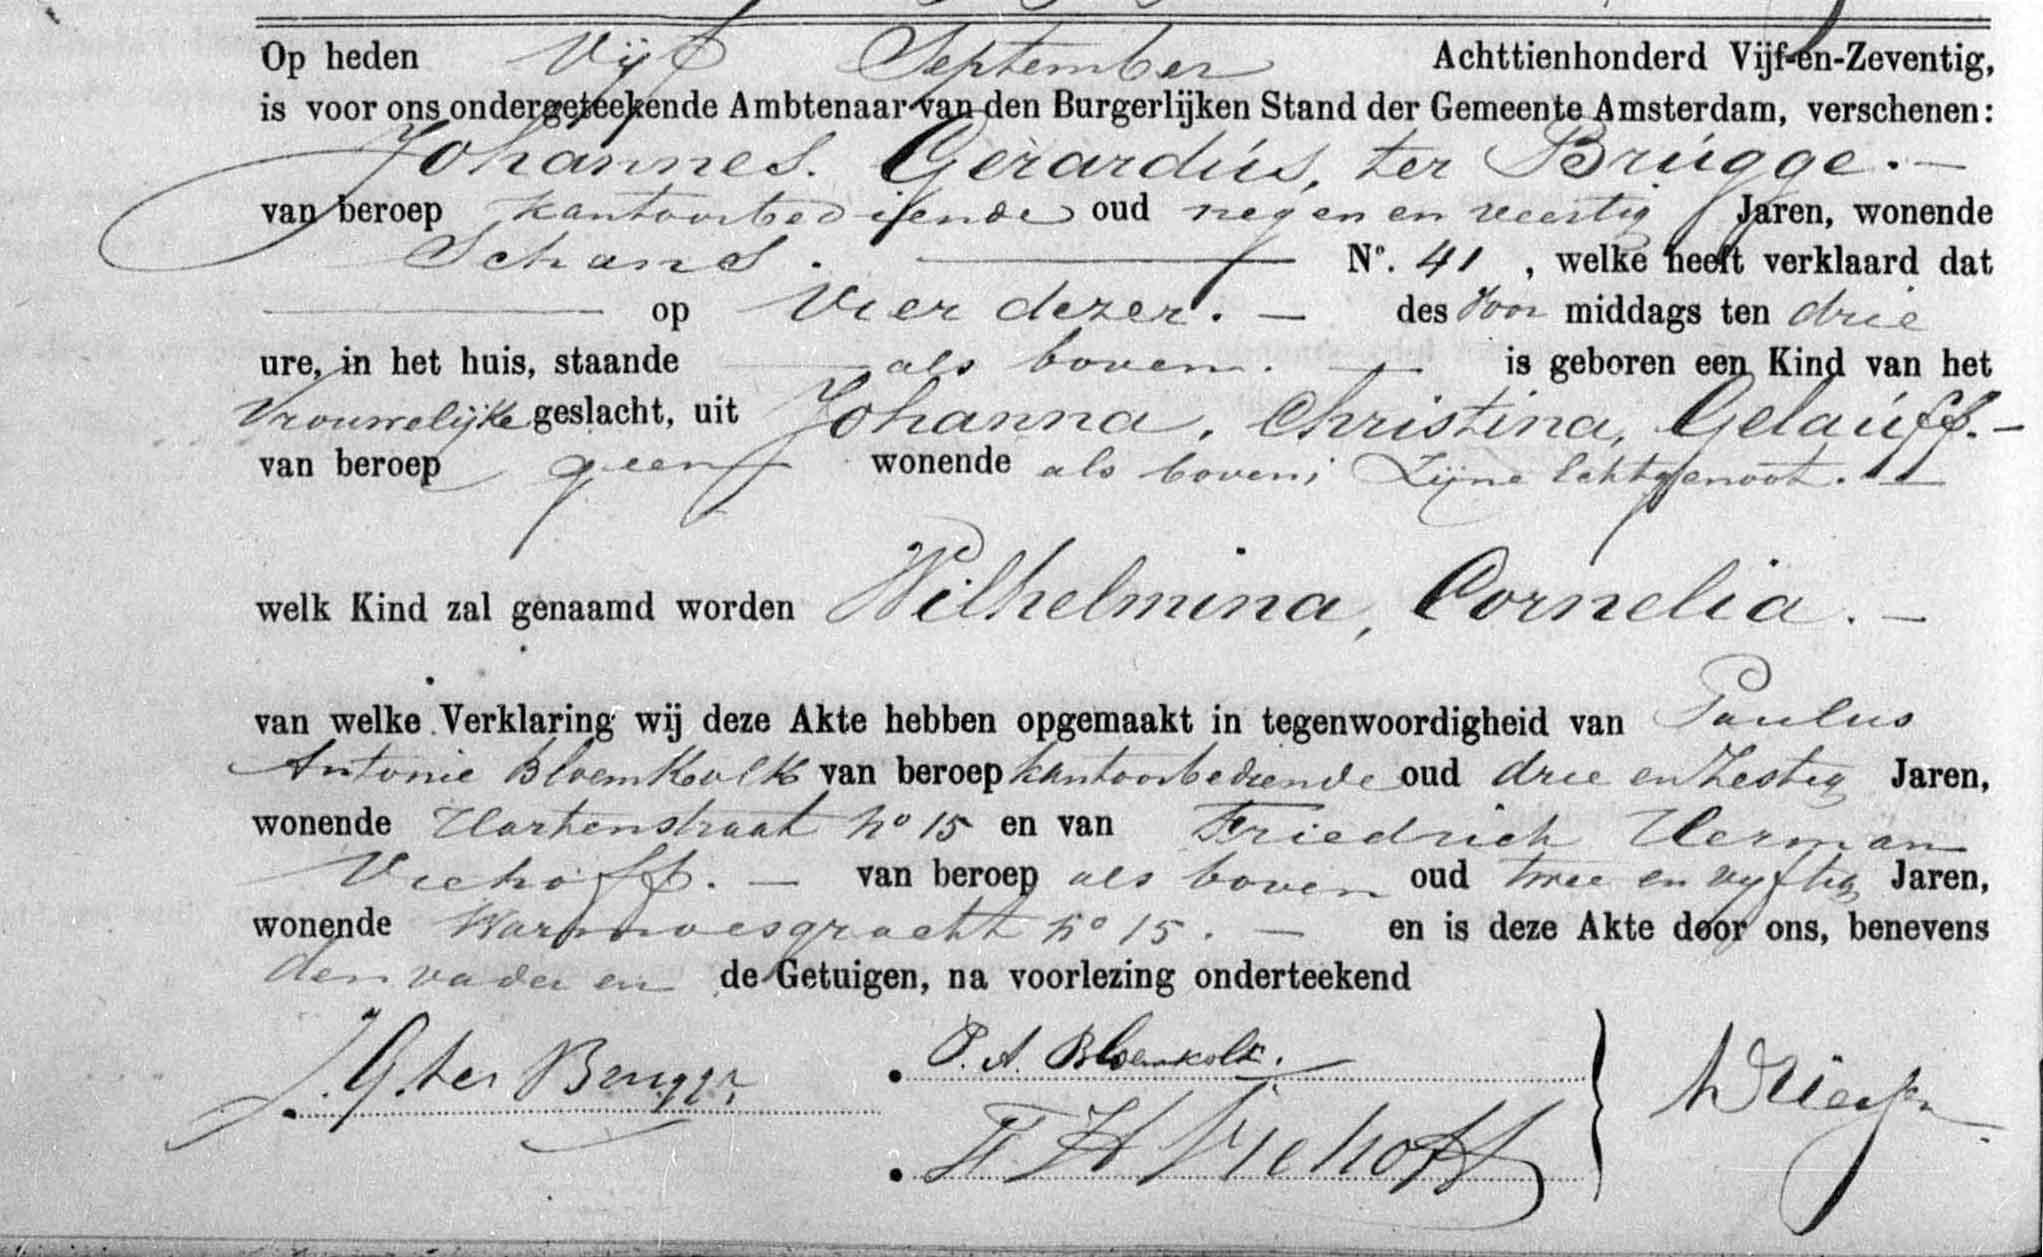 Op heden Vijf September Achttienhonderd Vijf-en-Zeventig,
is voor ons ondergeteekende Ambtenaar van den Burgerlijken Stand der Gemeente Amsterdam, verschenen:
Johannes. Gerardus, ter Brugge. —
van beroep kantoorbediende oud negen en veertig Jaren, wonende
Schans. — No. 41, welke heeft verklaard dat
— op Vier dezer. — des Voor middags ten drie
ure, in het huis, staande — als boven. — is geboren een Kind van het
Vrouwelijke geslacht, uit Johanna, Christina, Gelauff. —
van beroep geen wonende als boven; Zijne Echtgenoot. —
welk Kind zal genaamd worden Wilhelmina, Cornelia. —
van welke Verklaring wij deze Akte hebben opgemaakt in tegenwoordigheid van Paulus
Antonie Bloemkolk van beroep kantoorbediende oud drie en Zestig Jaren,
wonende Hartenstraat No 15 en van Friedrich Herman
Viehoff. — van beroep als boven oud twee en vyftig Jaren,
wonende Warmoesgracht no 15. — en is deze Akte door ons, benevens
den vader en de Getuigen, na voorlezing onderteekend
J. G. ter Brugge
P. A. Bloemkolk.
F H Viehoff